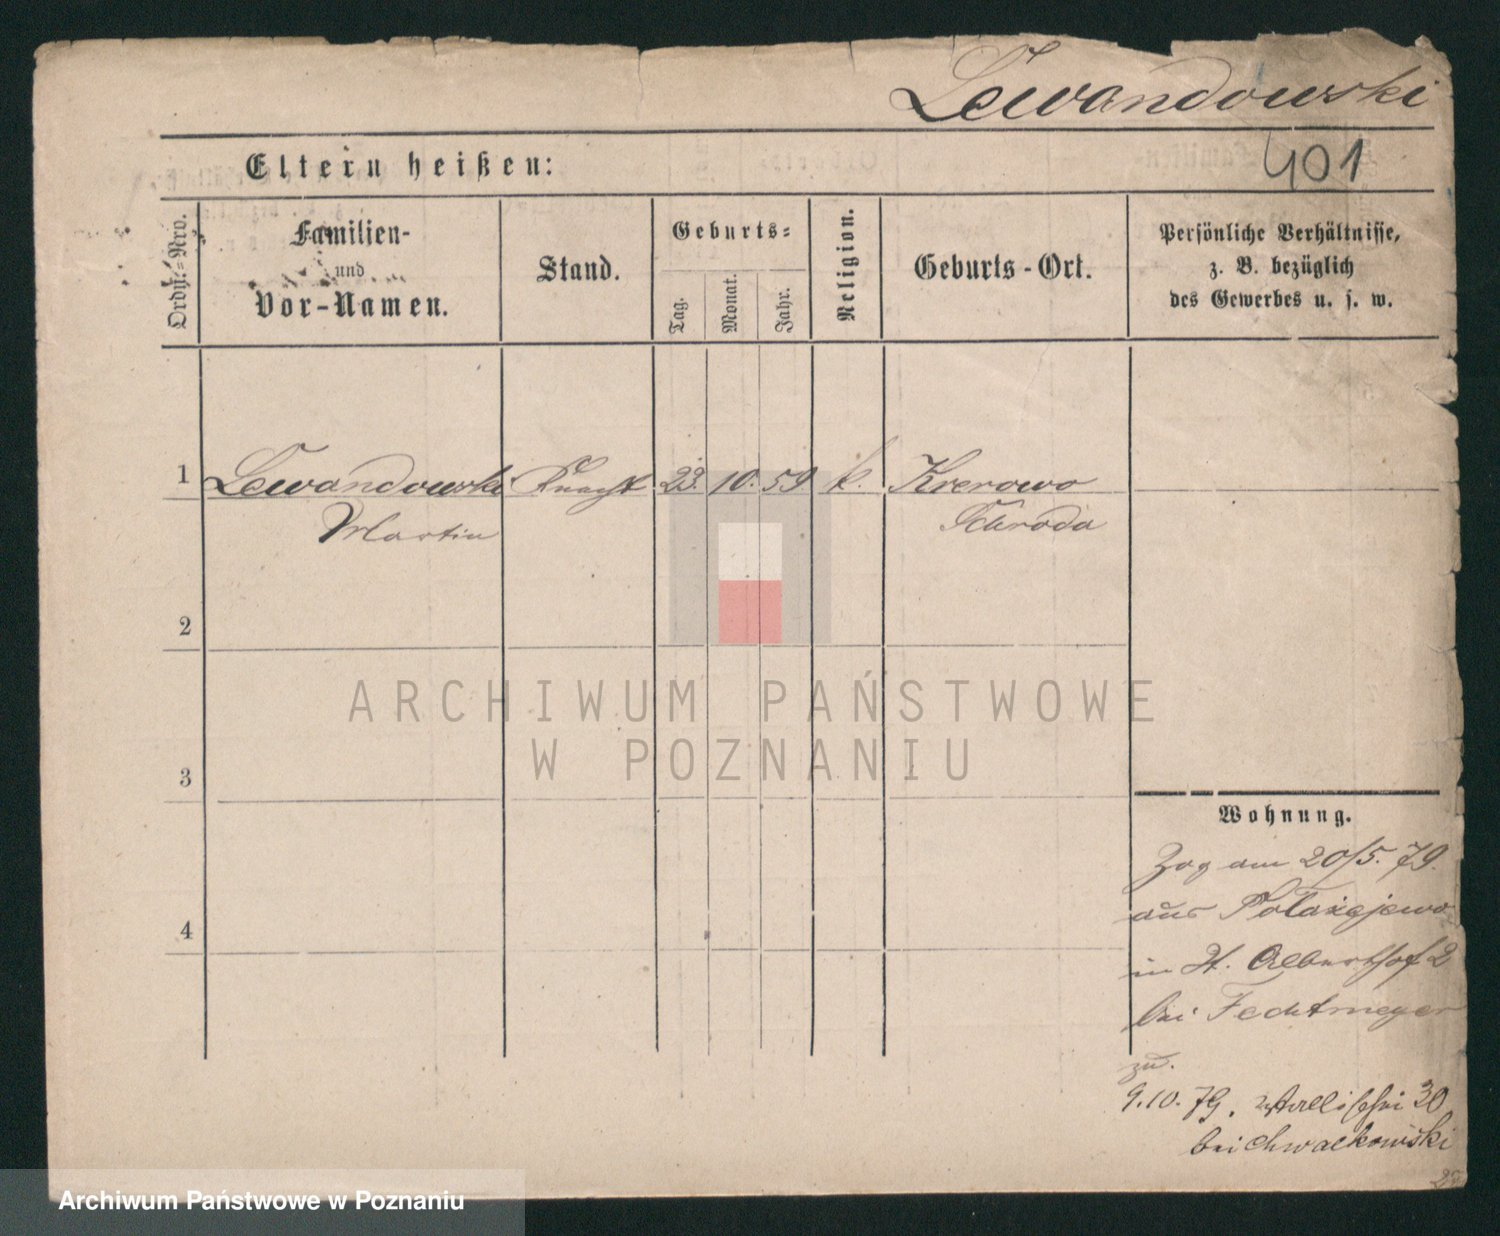 Lewandowski
401
Eltern heißen:
Ordn.-Nro.
Familien-
und
Vor-Namen.
Stand.
Geburts-
Tag.
Monat.
Jahr.
Religion.
Geburts-Ort.
Persönliche Verhältnisse,
z. B. bezüglich
des Gewerbes u. s. w.
1 Lewandowski Knecht 23. 10. 59 k. Krerowo
Martin Schroda
2
ARCHIWUM PAŃSTWOWE
W POZNANIU
3
Wohnung.
Zog am 20/5. 79.
aus Polazejewo
4
in St. Alberthof 2
bei Fechtmeyer
zu.
9.10.79. Wallischei 30
bei Chwalkowski
Archiwum Państwowe w Poznaniu